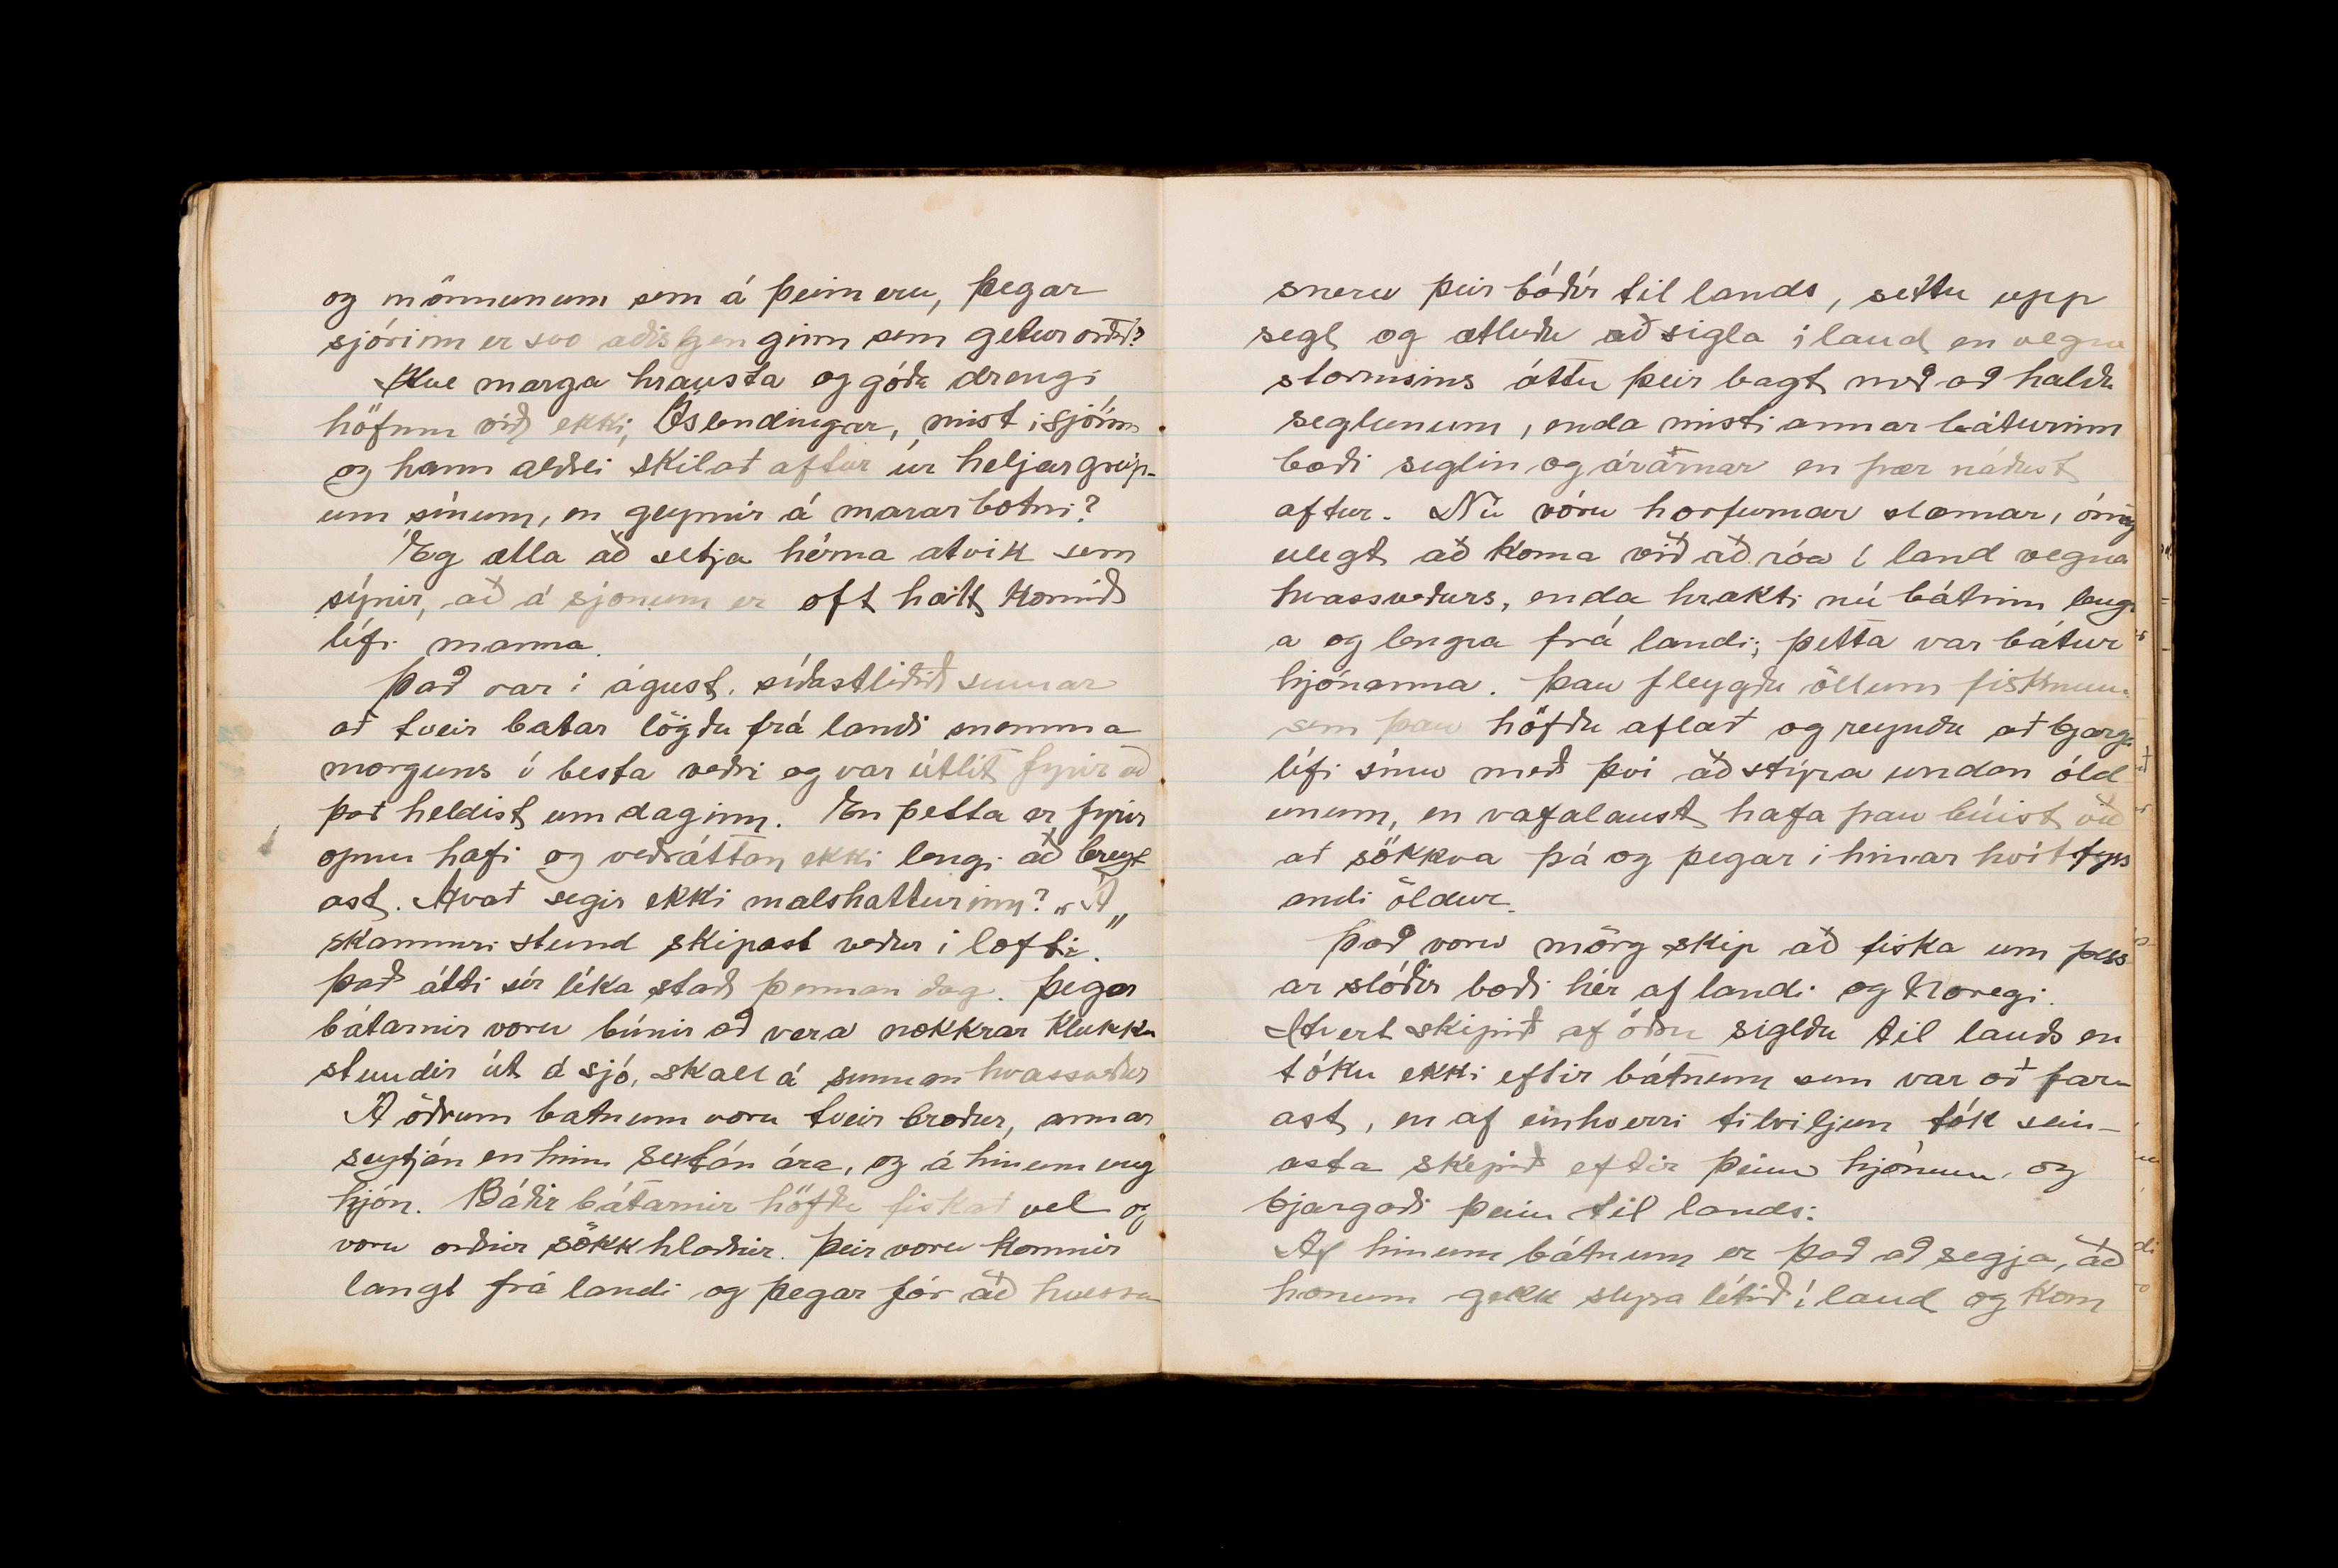 og mönnunum sem á þeim eru, þegar
sjórinn er svo æðisgenginn sem getur orðið?
Hve marga hrausta og góða drengi
höfum við ekki, Íslendingar, mist í sjóinn
og hann aldrei skilað aftur úr heljargreip-
um sínum, en geymir á mararbotni?
Eg ætla að setja hérna atvik sem
sýnir, að á sjonum er oft hætt komið
lífi manna.
Það var í ágúst, síðastliðið sumar
að tveir batar lögðu frá landi snemma
morguns í besta veðri og var útlit fyrir að
það heldist um daginn. En þetta er fyrir
opnu hafi og veðráttan ekki lengi að breyt
ast. Hvað segir ekki malshátturinn? „Á
skammri stund skipast veður í lofti."
Það átti sér líka stað þennan dag. Þegar
bátarnir voru búnir að vera nokkrar klukku
stundir út á sjó, skall á sunnan hvassveður
Á öðrum batnum voru tveir bræður, annar
seytján en hinn sextán ára, og á hinum ung
hjón. Báðir bátarnir höfðu fiskað vel og
voru orðnir sökkhlaðnir. Þeir voru komnir
langt frá landi og þegar fór að hvessa
sneru þeir báðir til lands, settu upp
segl og ætluðu að sigla í land en vegna
stormsins áttu þeir bagt með að halda
seglunum, enda misti annar báturinn
bæði seglin og árarnar en þær náðust
aftur. Nú vóru horfurnar slæmar, ómög
ulegt að koma við að róa í land vegna
hvassveðurs, enda hrakti nú bátinn leng
a og lengra frá landi; þetta var bátur
hjónanna. Þau fleygðu öllum fisknum
sem þau höfðu aflað og reyndu að bjarga
lífi sínu með því að stýra undan öld
unum, en vafalaust hafa þau búist við
að sökkva þá og þegar í hinar hvítfyss
andi öldur.
Það voru mörg skip að fiska um þess
ar slóðir bæði hér af landi og Noregi.
Hvert skipið af öðru sigldu til lands en
tóku ekki eftir bátnum sem var að far
ast, en af einhverri tilviljun tók sein-
asta skipið eftir þeim hjónum, og
bjargaði þeim til lands:
Af hinum bátnum er það að segja, að
honum gekk slysa lítið í land og kom